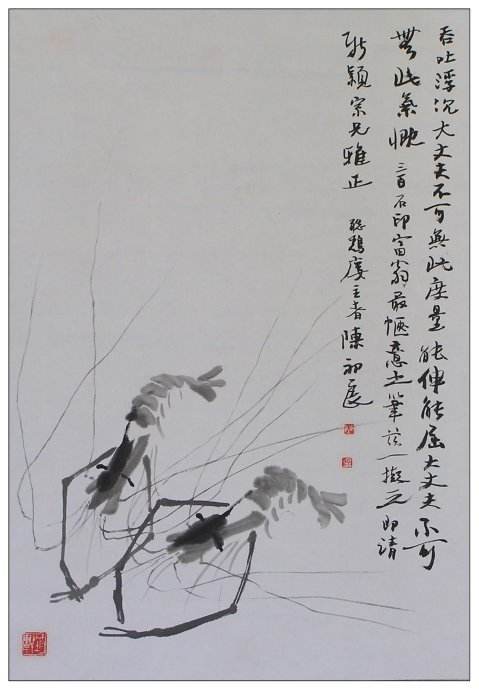 吞吐浮沉大丈夫不可無此度量能伸能屈大丈夫不可
無此氣概三百石印富翁最愜意之筆茲一擬之即請
穎宗兄雅正聽鵑廔主者陳初良